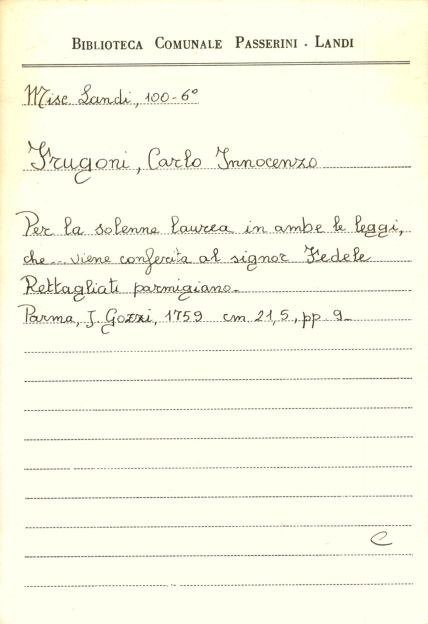 BIBLIOTECA COMUNALE PASSERINI - LANDI
Misc. Landi, 100-6°
Frugoni, Carlo Innocenzo
Per la solenne laurea in ambe le leggi,
che... viene conferita al signor Fedele
Rettagliati parmigiano.
Parma, J. Gozzi, 1759 cm 21,5, pp 9.
C